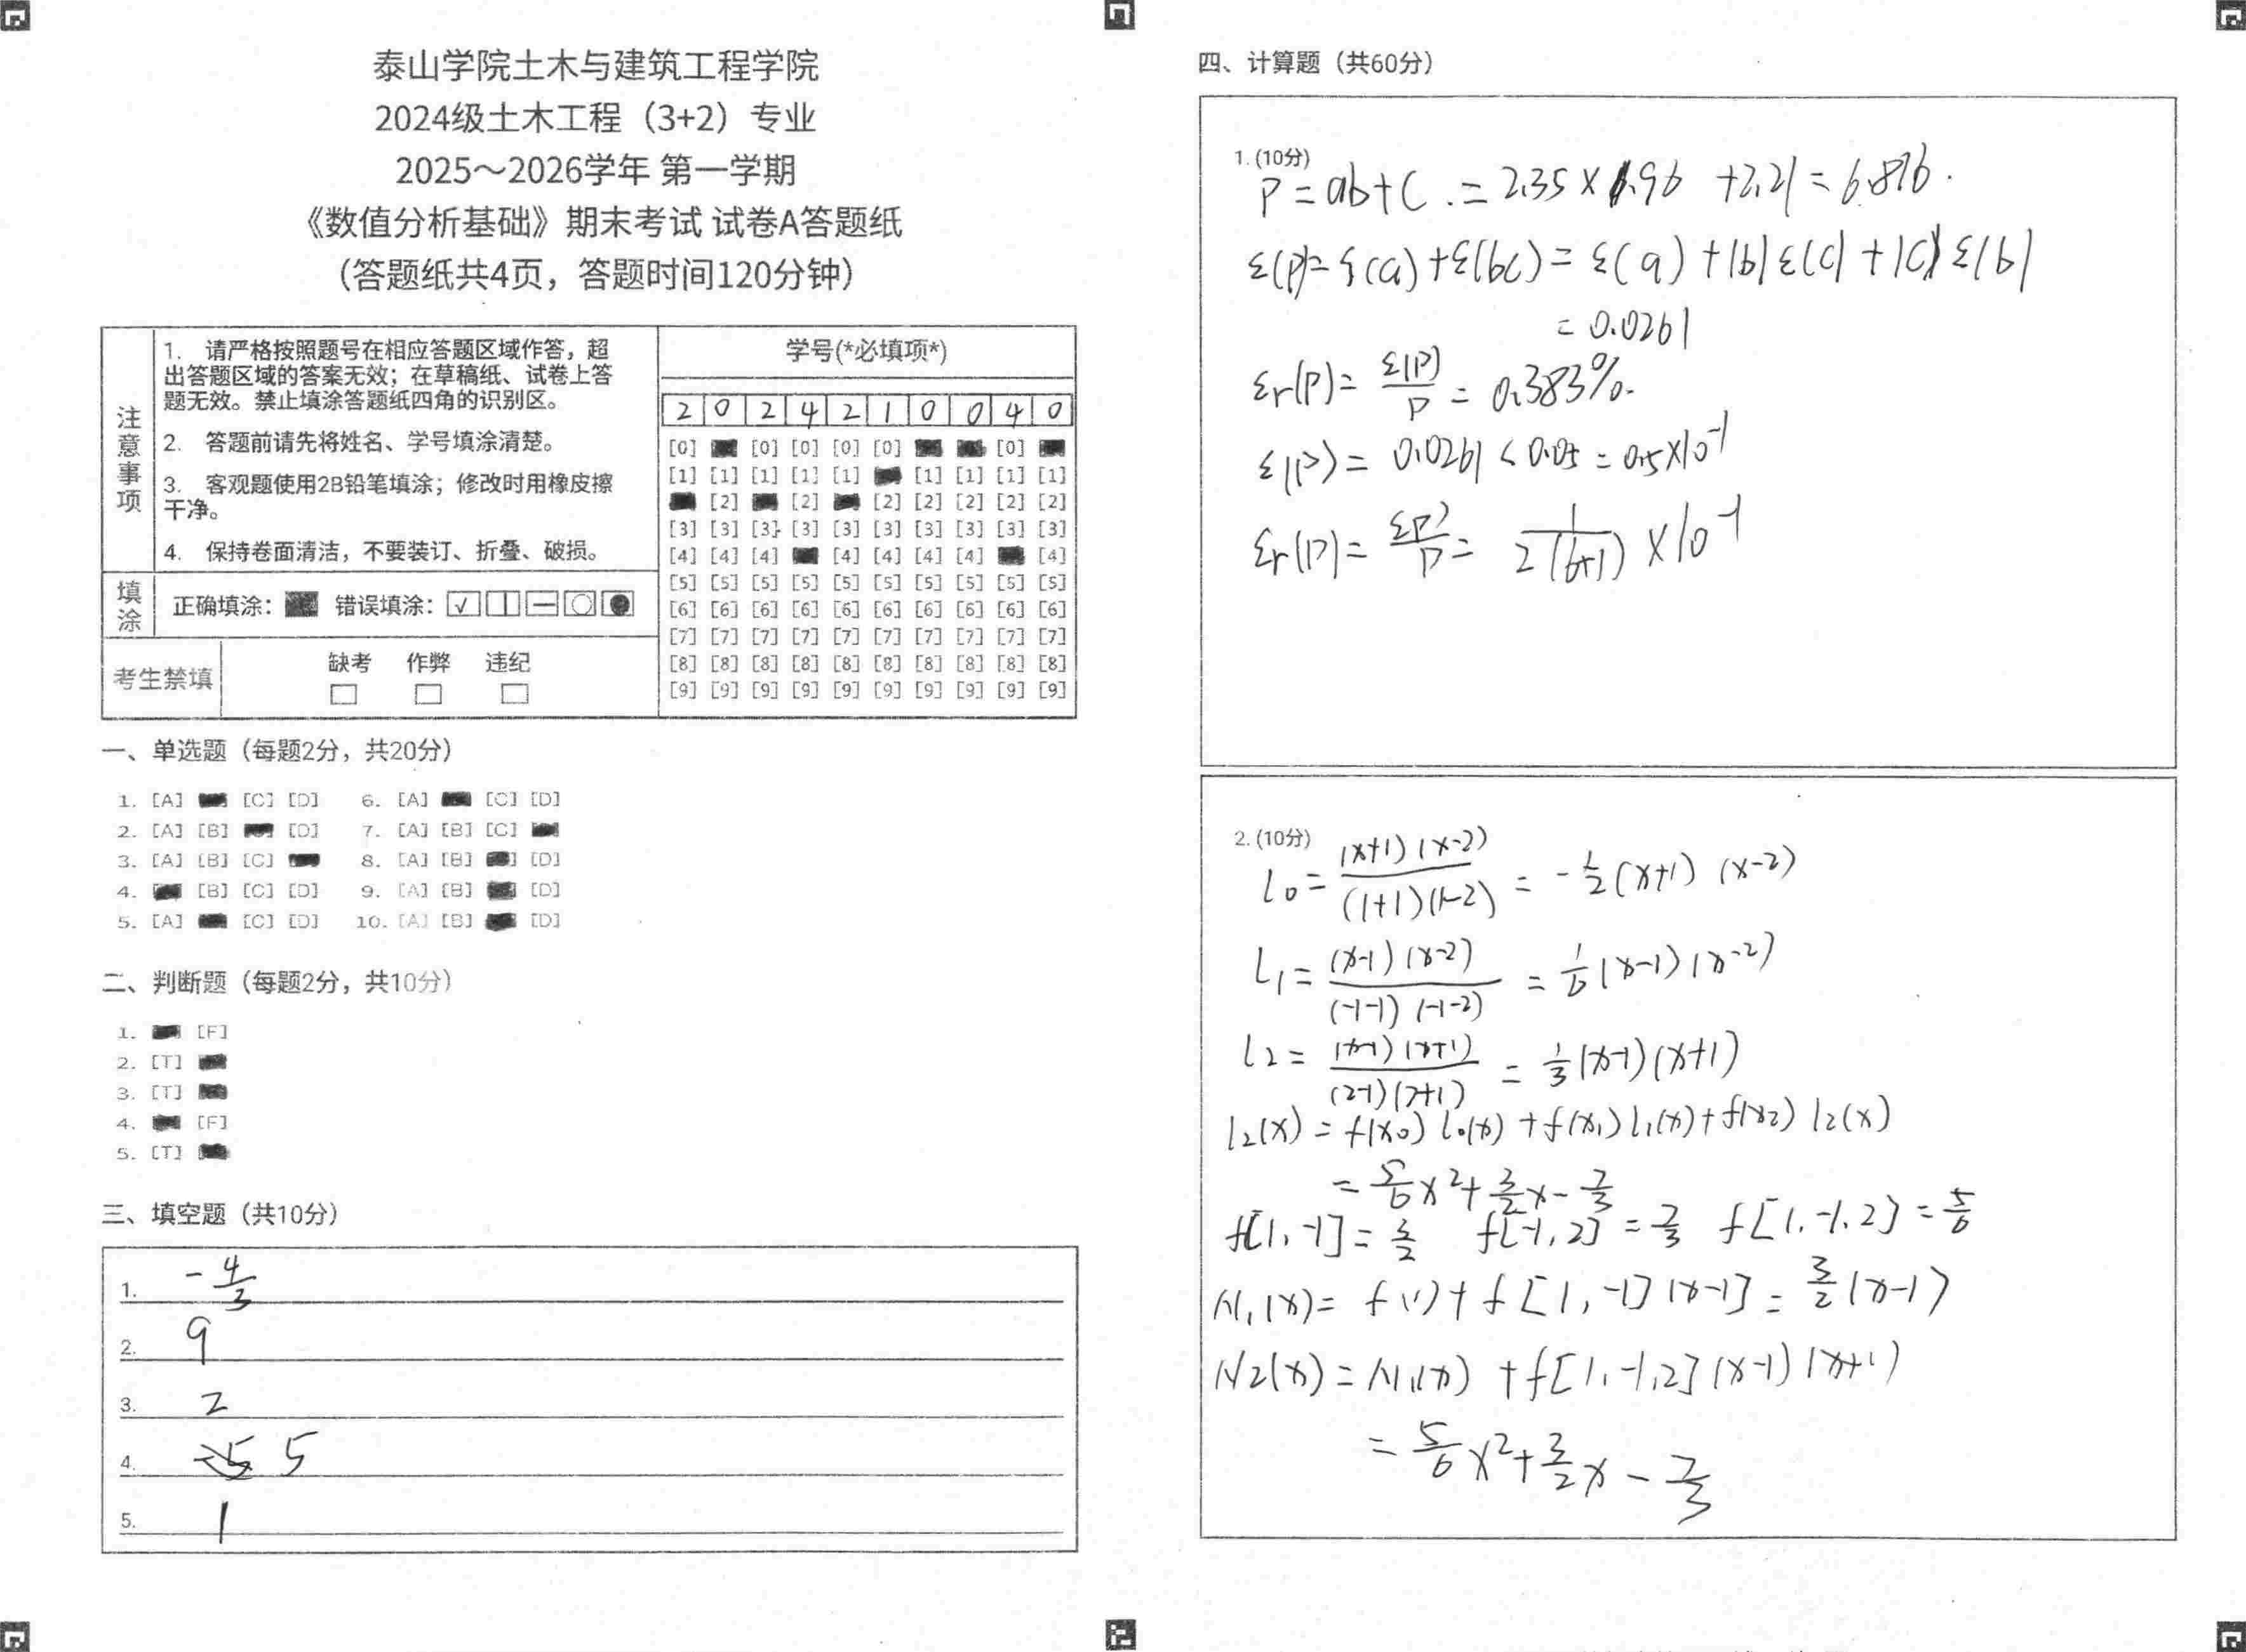 泰山学院土木与建筑工程学院
2024级土木工程（3+2）专业
2025～2026学年 第一学期
《数值分析基础》期末考试 试卷A答题纸
（答题纸共4页，答题时间120分钟）
注意事项
1. 请严格按照题号在相应答题区域作答，超
出答题区域的答案无效；在草稿纸、试卷上答
题无效。禁止填涂答题纸四角的识别区。
2. 答题前请先将姓名、学号填涂清楚。
3. 客观题使用2B铅笔填涂；修改时用橡皮擦
干净。
4. 保持卷面清洁，不要装订、折叠、破损。
填涂 正确填涂： 错误填涂：
考生禁填 缺考 作弊 违纪
学号(*必填项*)
2 0 2 4 2 1 0 0 4 0
[0] [0] [0] [0] [0] [0]
[1] [1] [1] [1] [1] [1] [1] [1] [1]
[2] [2] [2] [2] [2] [2] [2]
[3] [3] [3] [3] [3] [3] [3] [3] [3] [3]
[4] [4] [4] [4] [4] [4] [4] [4]
[5] [5] [5] [5] [5] [5] [5] [5] [5] [5]
[6] [6] [6] [6] [6] [6] [6] [6] [6] [6]
[7] [7] [7] [7] [7] [7] [7] [7] [7] [7]
[8] [8] [8] [8] [8] [8] [8] [8] [8] [8]
[9] [9] [9] [9] [9] [9] [9] [9] [9] [9]
一、单选题（每题2分，共20分）
1. [A] [C] [D] 6. [A] [C] [D]
2. [A] [B] [D] 7. [A] [B] [C]
3. [A] [B] [C] 8. [A] [B] [D]
4. [B] [C] [D] 9. [A] [B] [D]
5. [A] [C] [D] 10. [A] [B] [D]
二、判断题（每题2分，共10分）
1. [F]
2. [T]
3. [T]
4. [F]
5. [T]
三、填空题（共10分）
1. -4/3
2. 9
3. 2
4. 5
5. 1
四、计算题（共60分）
1. (10分)
P = ab+C . = 2.35 × 1.96 + 2.21 = 6.816.
ε(P) = ε(a) + ε(bc) = ε(a) + |b|ε(c) + |c|ε(b)
= 0.0261
εr(P) = ε(P)/P = 0.383%.
ε(P) = 0.0261 < 0.05 = 0.5×10⁻¹
εr(P) = ε(P)/P = 1/(2(6+1)) × 10⁻¹
2. (10分)
l0 = (x+1)(x-2)/((1+1)(1-2)) = -1/2(x+1)(x-2)
l1 = (x-1)(x-2)/((-1-1)(-1-2)) = 1/6(x-1)(x-2)
l2 = (x-1)(x+1)/((2-1)(2+1)) = 1/3(x-1)(x+1)
l2(x) = f(x0)l0(x) + f(x1)l1(x) + f(x2)l2(x)
= 5/6x²+3/2x-7/3
f[1,-1] = 3/2 f[-1,2] = 7/3 f[1,-1,2] = 5/6
N1(x) = f(1) + f[1,-1](x-1) = 3/2(x-1)
N2(x) = N1(x) + f[1,-1,2](x-1)(x+1)
= 5/6x²+3/2x-7/3